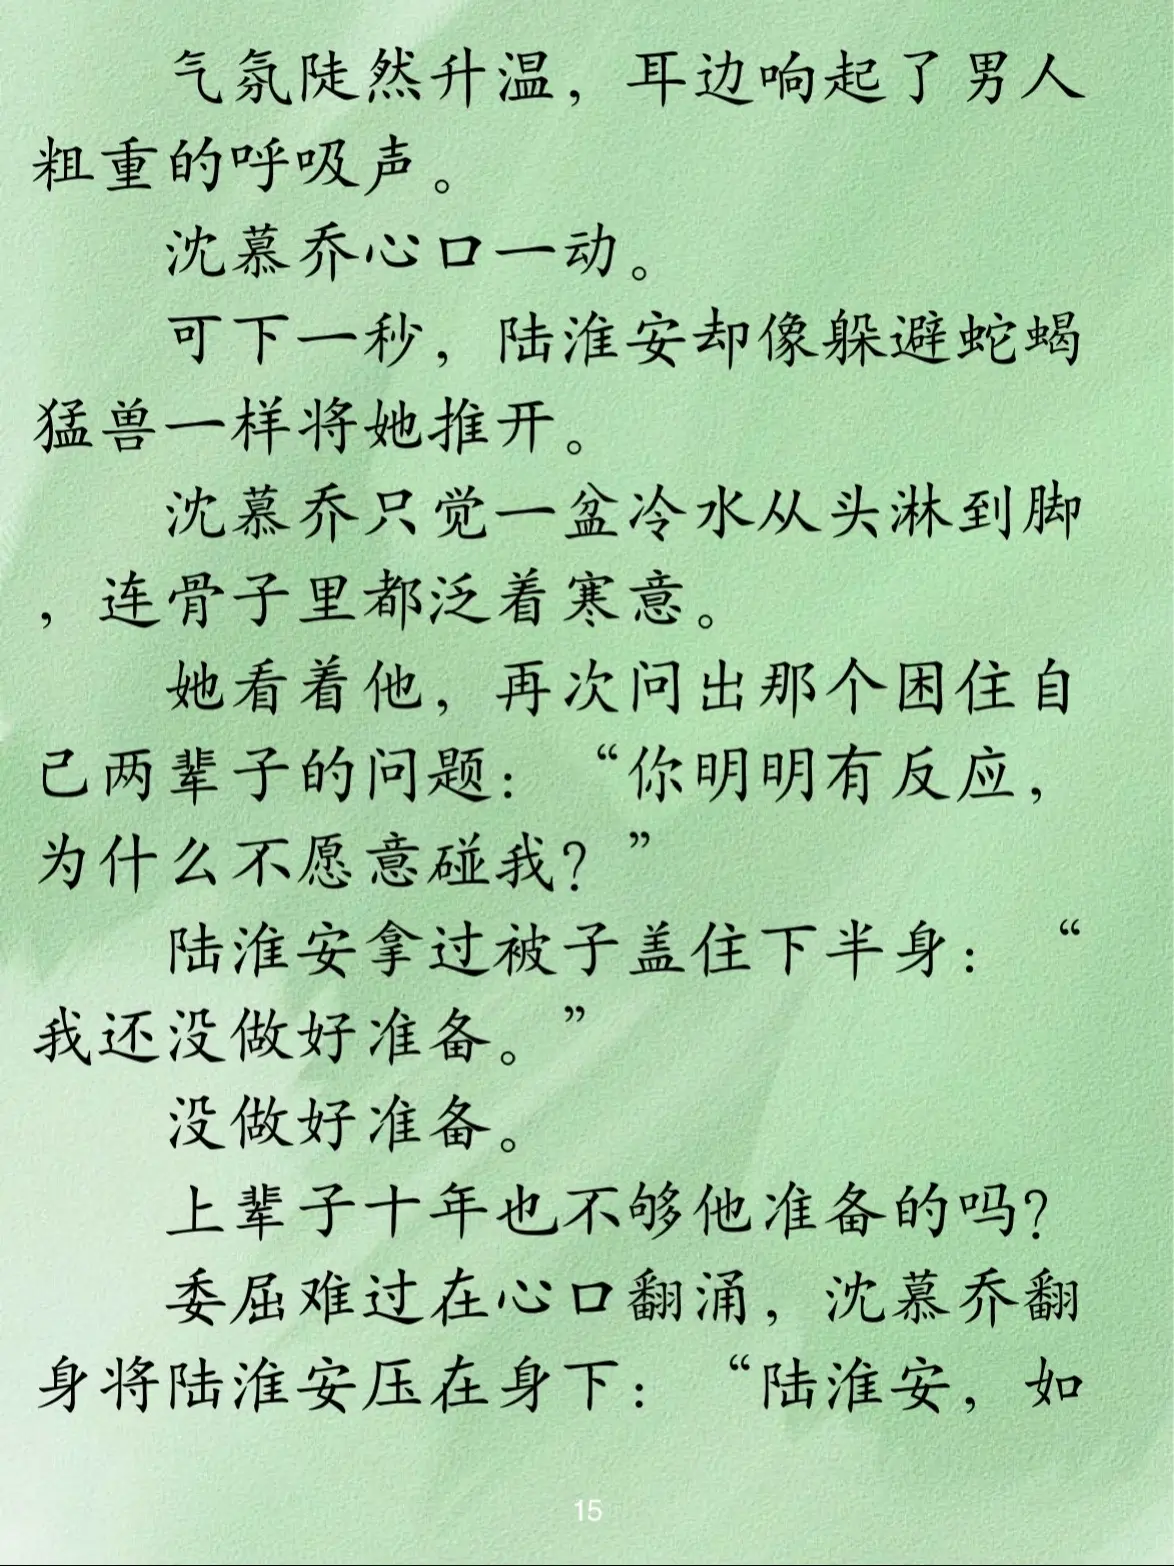 气氛陡然升温，耳边响起了男人
粗重的呼吸声。
沈慕乔心口一动。
可下一秒，陆淮安却像躲避蛇蝎
猛兽一样将她推开。
沈慕乔只觉一盆冷水从头淋到脚
，连骨子里都泛着寒意。
她看着他，再次问出那个困住自
己两辈子的问题：“你明明有反应，
为什么不愿意碰我？”
陆淮安拿过被子盖住下半身：“
我还没做好准备。”
没做好准备。
上辈子十年也不够他准备的吗？
委屈难过在心口翻涌，沈慕乔翻
身将陆淮安压在身下：“陆淮安，如
15